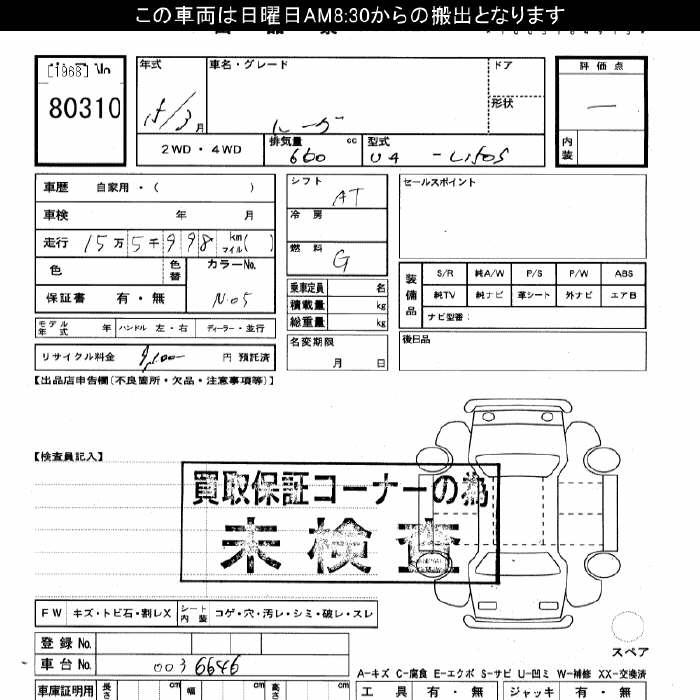 この車両は日曜日AM8:30からの搬出となります
[1968] No
80310
年式
15/3月
車名・グレード
ルーヴ
ドア
形状
評価点
内装
2WD・4WD
排気量 660 cc
型式
車歴 自家用・( )
車検 年 月
走行 15万5千998 km マイル( )
色
色替
カラーNo.
N.05
保証書 有・無
モデル年式 年
ハンドル 左・右
ディーラー・並行
リサイクル料金 円 預託済
シフト
AT
冷房
燃料
G
乗車定員 名
積載量 kg
総重量 kg
名変期限
月 日
セールスポイント
装備品
S/R 純A/W P/S P/W ABS
純TV 純ナビ 革シート 外ナビ エアB
ナビ型番:
後日品
【出品店申告欄(不良箇所・欠品・注意事項等)】
【検査員記入】
買取保証コーナーの為
未検査
FW キズ・トビ石・割レX
シート内装 コゲ・穴・汚レ・シミ・破レ・スレ
スペア
登録No.
車台No. 0036646
A-キズ C-腐食 E-エクボ S-サビ U-凹ミ W-補修 XX-交換済
車庫証明用 長さ cm 幅 cm 高さ cm
工具 有・無 ジャッキ 有・無